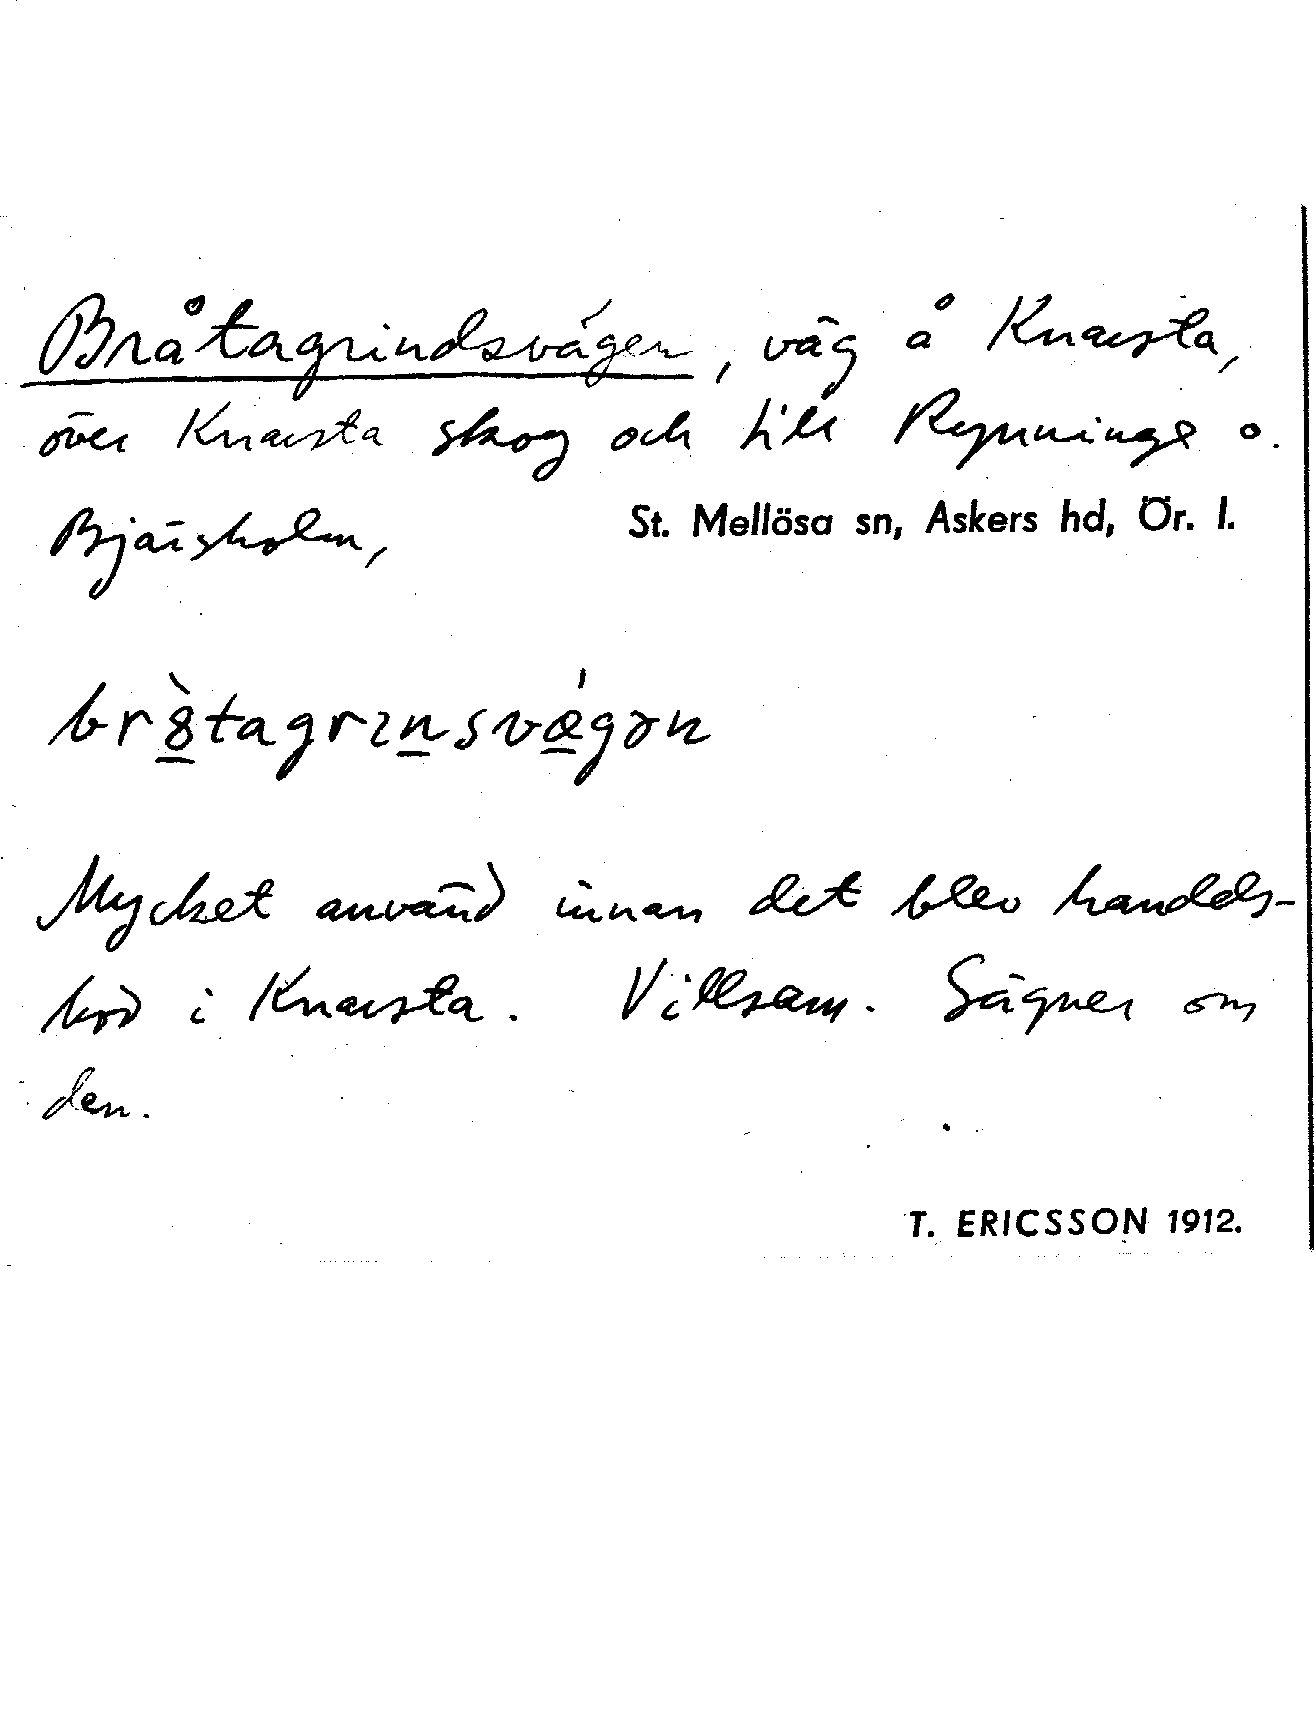 Bråtagrindsvägen, väg å Knavsta,
över Knavsta skog och till Rynninge o.
Bjärsholm,
St. Mellösa sn, Askers hd, Ör. l.
br8̀tagrınsvǽgən
Mycket använd innan det blev handels-
bod i Knavsta. Villsam. Sägner om
den.
T. ERICSSON 1912.